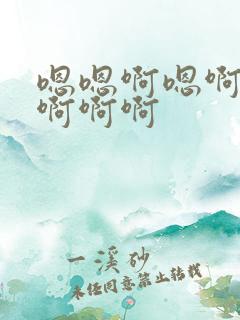 嗯嗯啊嗯啊
啊啊啊
一溪砂
未经同意禁止转载